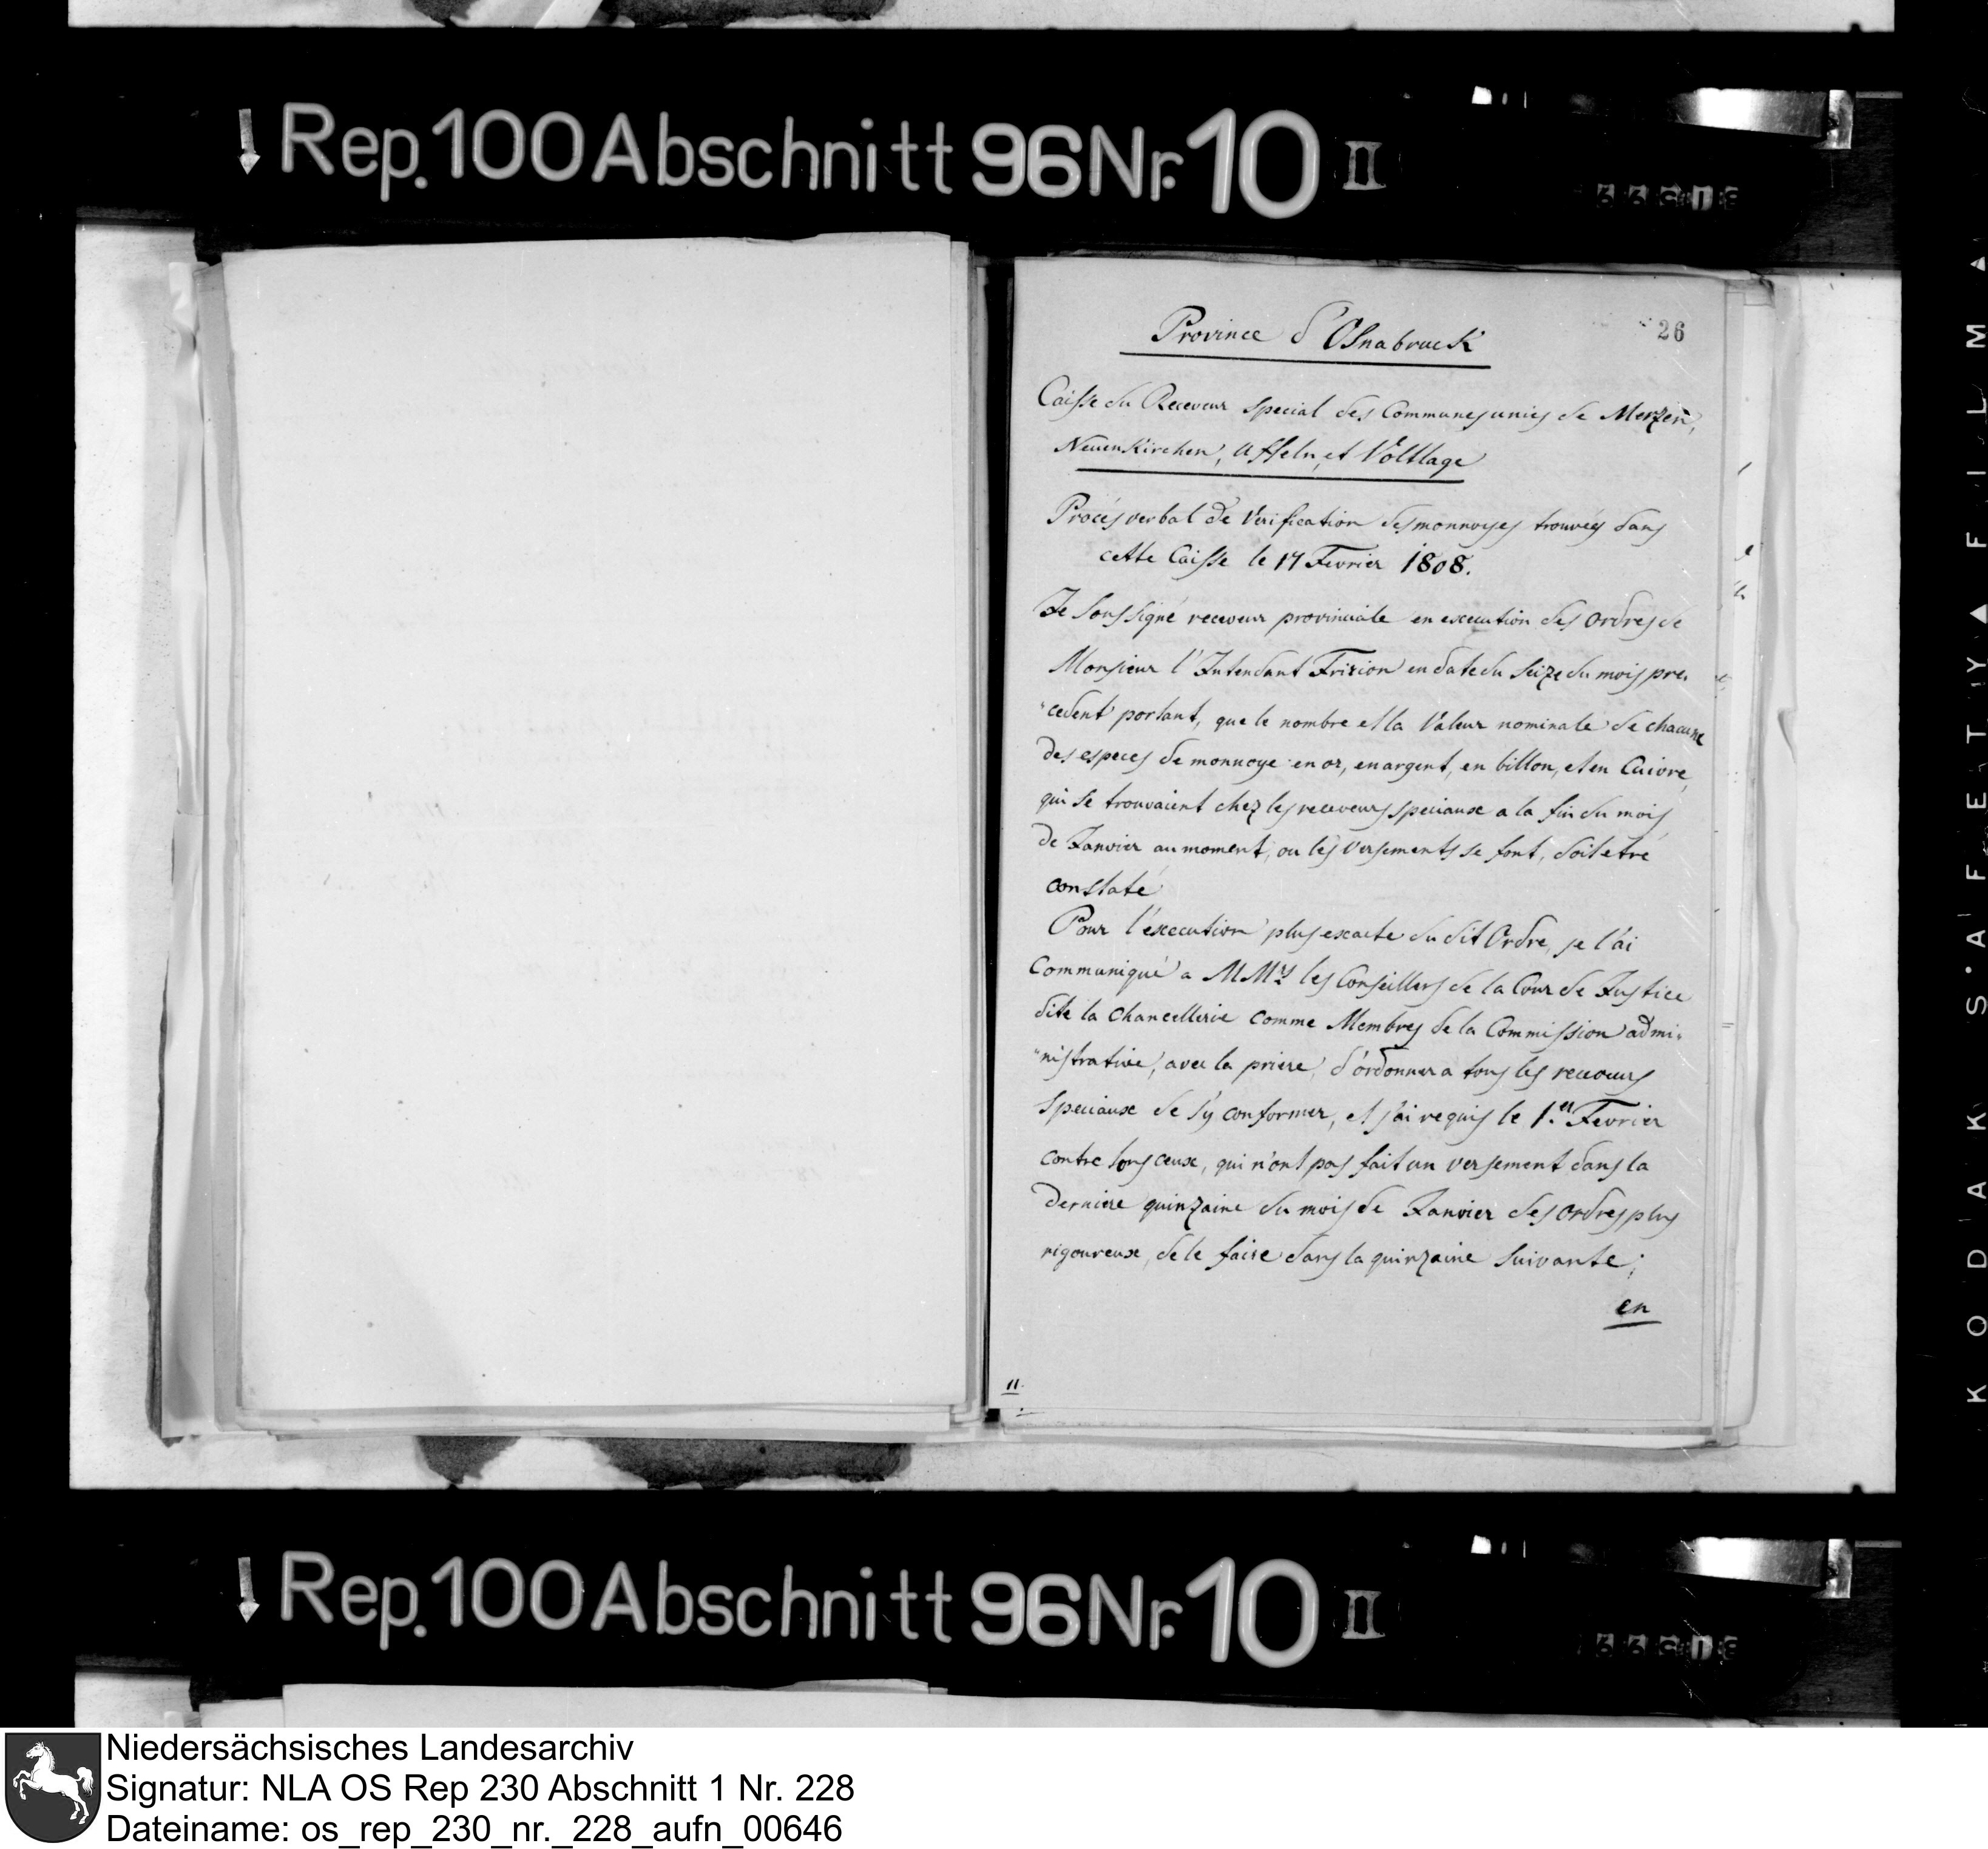 Rep. 100 Abschnitt 96 Nr. 10 II
26
Province d'Osnabruck
Caisse du Receveur special des Communes unies de Merzen,
Neuenkirchen, Uffeln, et Voltlage
Procés verbal de Verification des monnoyes trouvées dans
cette Caisse le 17 Fevrier 1808.
Je soussigné receveur provinciale en execution des Ordres de
Monsieur l'Intendant Frision en date du seize du mois pre„
„cedent portant, que le nombre et la Valeur nominale de chacune
des especes de monnoye en or, en argent, en billon, et en Cuivre,
qui se trouvaient chez les receveurs speciaux a la fin du mois
de Janvier au moment, ou les versements se font, doit etre
constaté
Pour l'execution plus exacte du dit Ordre, je l'ai
communiqué a MMrs les Conseillers de la Cour de Justice
dite la Chancellerie comme Membres de la Commission admi„
„nistrative, avec la priere, d'ordonner a tous les receveurs
speciaux de s'y conformer, et j'ai requis le 1.er Fevrier
contre tous ceux, qui n'ont pas fait un versement dans la
derniere quinzaine du mois de Janvier des Ordres plus
rigoureux, de le faire dans la quinzaine suivante;
en
11.
Rep. 100 Abschnitt 96 Nr. 10 II
KODAK SAFETY FILM
Niedersächsisches Landesarchiv
Signatur: NLA OS Rep 230 Abschnitt 1 Nr. 228
Dateiname: os_rep_230_nr._228_aufn_00646